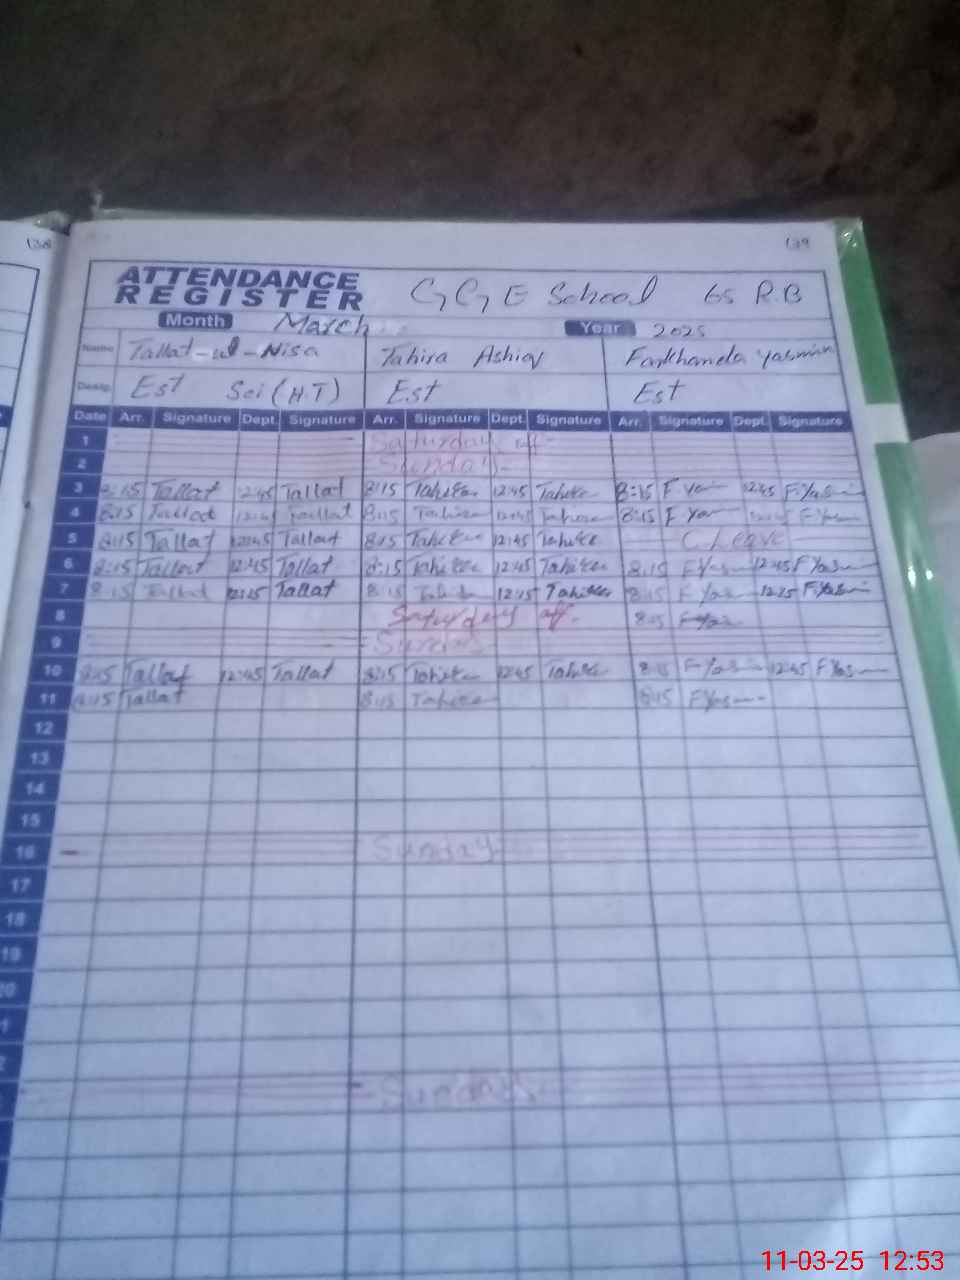 138
139
ATTENDANCE
REGISTER
GGE School 65 R.B
Month March Year 2025
Name Tallat-ul-Nisa Tahira Ashiq Farkhanda Yasmin
Desig. Est Sci (H.T) Est Est
Date Arr. Signature Dept. Signature Arr. Signature Dept. Signature Arr. Signature Dept. Signature
1 Saturday off
2 Sunday
3 8:15 Tallat 12:45 Tallat 8:15 Tahira 12:45 Tahira 8:15 F.Yas 12:45 F.Yasmin
4 8:15 Tallat 12:45 Tallat 8:15 Tahira 12:45 Tahira 8:15 F Yas F.Yasmin
5 8:15 Tallat 12:45 Tallat 8:15 Tahira 12:45 Tahira C.Leave
6 8:15 Tallat 12:45 Tallat 8:15 Tahira 12:45 Tahira 8:15 F Yas 12:45 F Yasmin
7 8:15 Tallat Tallat 8:15 Tahira 12:15 Tahira 8:15 F Yas 12:15 F.Yasmin
8 Saturday off. 8:15 F Yas
9 Sunday
10 8:15 Tallat 12:45 Tallat 8:15 Tahira 12:45 Tahira 8:15 F Yasmin 12:45 F Yas
11 8:15 Tallat 8:15 Tahira 8:15 F Yasmin
12
13
14
15
16 Sunday
17
18
19
Sunday
11-03-25 12:53